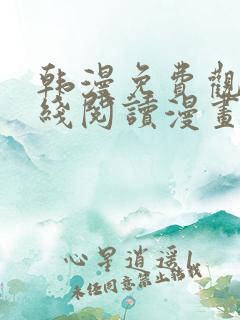 韩漫免費觀
綫閱讀漫畫
心星逍遥1
未经同意禁止转载